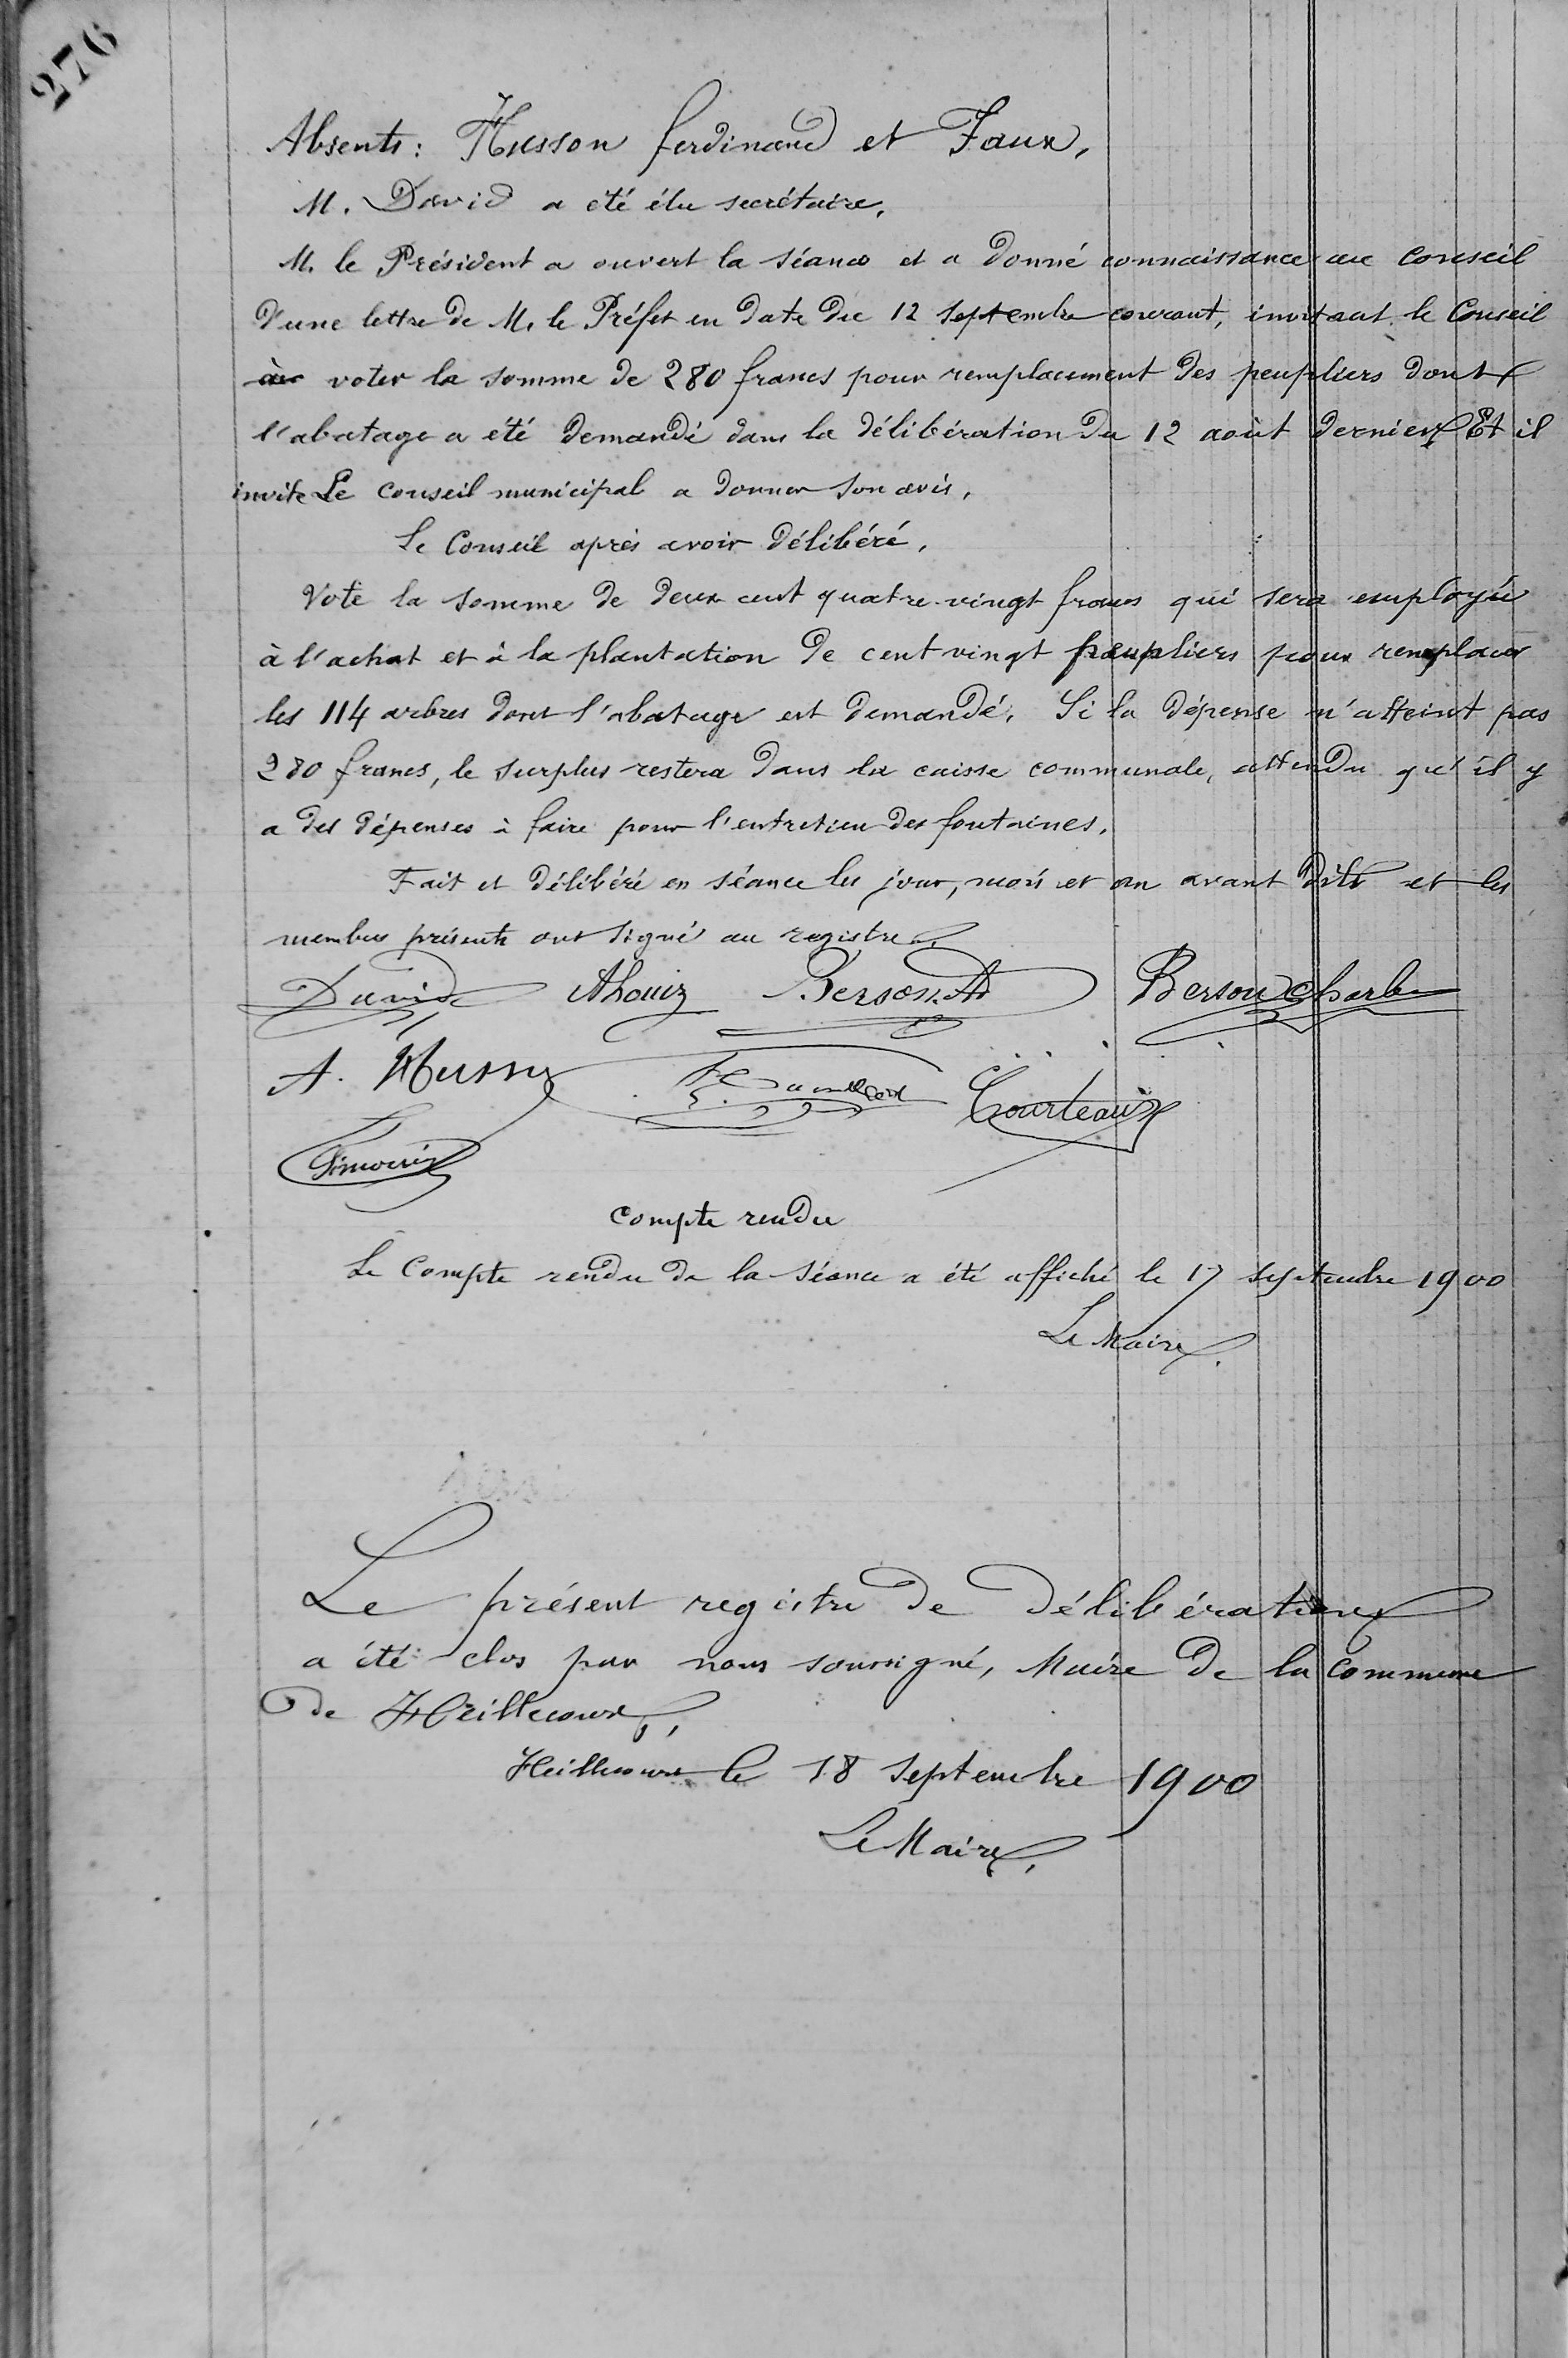 276
Absents : Husson ferdinand et Faux,
M. David a été élu secrétaire,
M. le Président a ouvert la séance et a donné connaissance au Conseil
d'une lettre de M. le Préfet en date du 12 septembre courant, invitant le Conseil
à voter la somme de 280 francs pour remplacement des peupliers dont
l'abatage a été demandé dans la délibération du 12 août dernier Et il
invite Le conseil municipal a donner son avis,
Le Conseil après avoir délibéré,
Vote la somme de deux cent quatre-vingt francs qui sera employée
à l'achat et à la plantation de cent vingt peupliers pour remplacer
les 114 arbres dont l'abatage est demandé. Si la dépense n'atteint pas
280 francs, le surplus restera dans la caisse communale, attendu qu'il y
a des dépenses à faire pour l'entretien des fontaines,
Fait et délibéré en séance les jour, mois et an avant dits et les
membres présents ont signé au registre.
David Berson Ad Berson Charles
A. Husson Courteaux
compte rendu
Le Compte rendu de la séance a été affiché le 17 septembre 1900
Le Maire,
Le présent registre de délibérations
a été clos par nous soussigné, Maire de la commune
de Heillecourt,
Heillecourt le 18 septembre 1900
Le Maire,